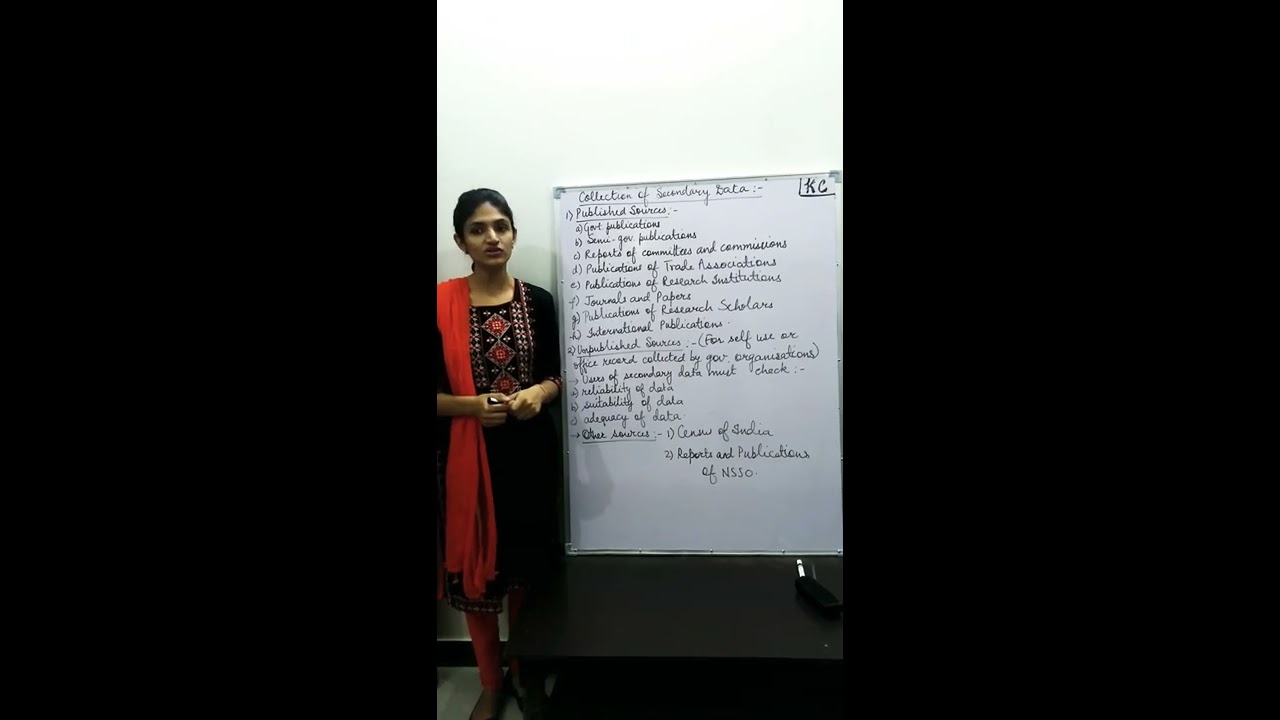 Collection of Secondary Data :-
KC
1) Published Sources :-
a) Govt publications
b) Semi-gov. publications
c) Reports of committees and commissions
d) Publications of Trade Associations
e) Publications of Research Institutions
f) Journals and Papers
g) Publications of Research Scholars
h) International Publications.
2) Unpublished Sources :- (For self use or
office record collected by gov. organisations)
→ Users of secondary data must check :-
a) reliability of data
b) suitability of data
c) adequacy of data.
→ Other sources :- 1) Census of India
2) Reports and Publications
of NSSO.